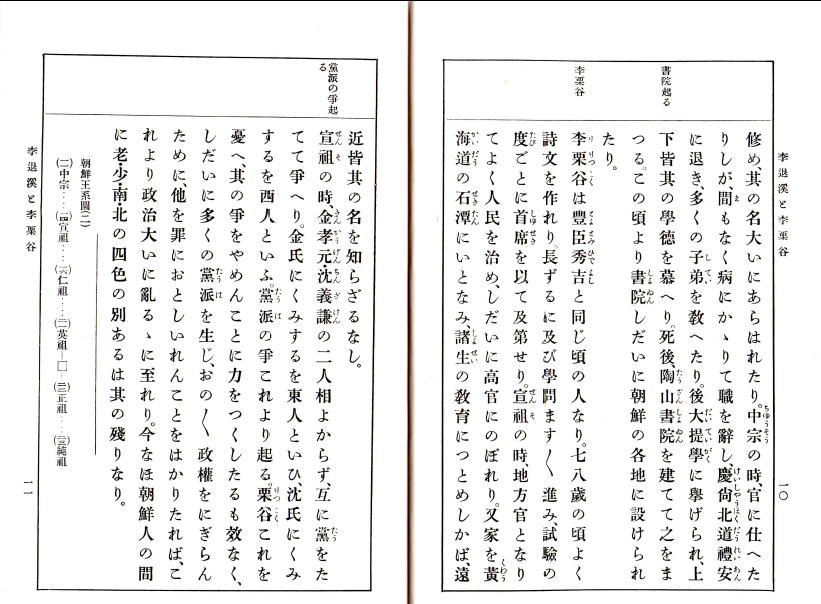 李退溪と李栗谷
一〇
修め、其の名大いにあらはれたり。中宗の時、官に仕へた
りしが、間もなく病にかゝりて職を辭し、慶尙北道禮安
に退き、多くの子弟を敎へたり。後大提學に擧げられ、上
下皆其の學德を慕へり。死後、陶山書院を建てて之をま
つる。この頃より書院しだいに朝鮮の各地に設けられ
たり。
書院起る
李栗谷は豐臣秀吉と同じ頃の人なり。七八歲の頃よく
詩文を作れり。長ずるに及び學問ます〳〵進み、試驗の
度ごとに首席を以て及第せり。宣祖の時、地方官となり
てよく人民を治め、しだいに高官にのぼれり。又家を黃
海道の石潭にいとなみ、諸生の敎育につとめしかば、遠
李栗谷
近皆其の名を知らざるなし。
宣祖の時、金孝元沈義謙の二人相よからず、互に黨をた
てて爭へり。金氏にくみするを東人といひ、沈氏にくみ
するを西人といふ。黨派の爭これより起る。栗谷これを
憂へ、其の爭をやめんことに力をつくしたるも效なく、
しだいに多くの黨派を生じ、おの〳〵政權をにぎらん
ために、他を罪におとしいれんことをはかりたれば、こ
れより政治大いに亂るゝに至れり。今なほ朝鮮人の間
に老・少・南・北の四色の別あるは其の殘りなり。
黨派の爭起
る
朝鮮王系圖(二)
(二)中宗‥‥(四)宣祖‥‥(六)仁祖‥‥(三)英祖―□―(三)正祖‥‥(三)純祖
李退溪と李栗谷
一一